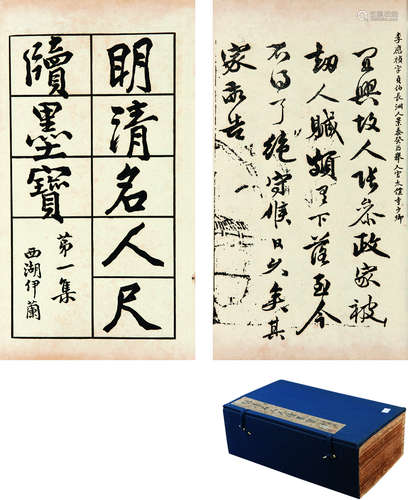 明清名人尺
牘墨寶
第一集
西湖伊蘭
李應禎字貞伯長洲人景泰癸酉舉人官太僕寺少卿
宜興故人張參政家被
劫人贓頗有下落至今
不得了絕守候日久矣其
家告